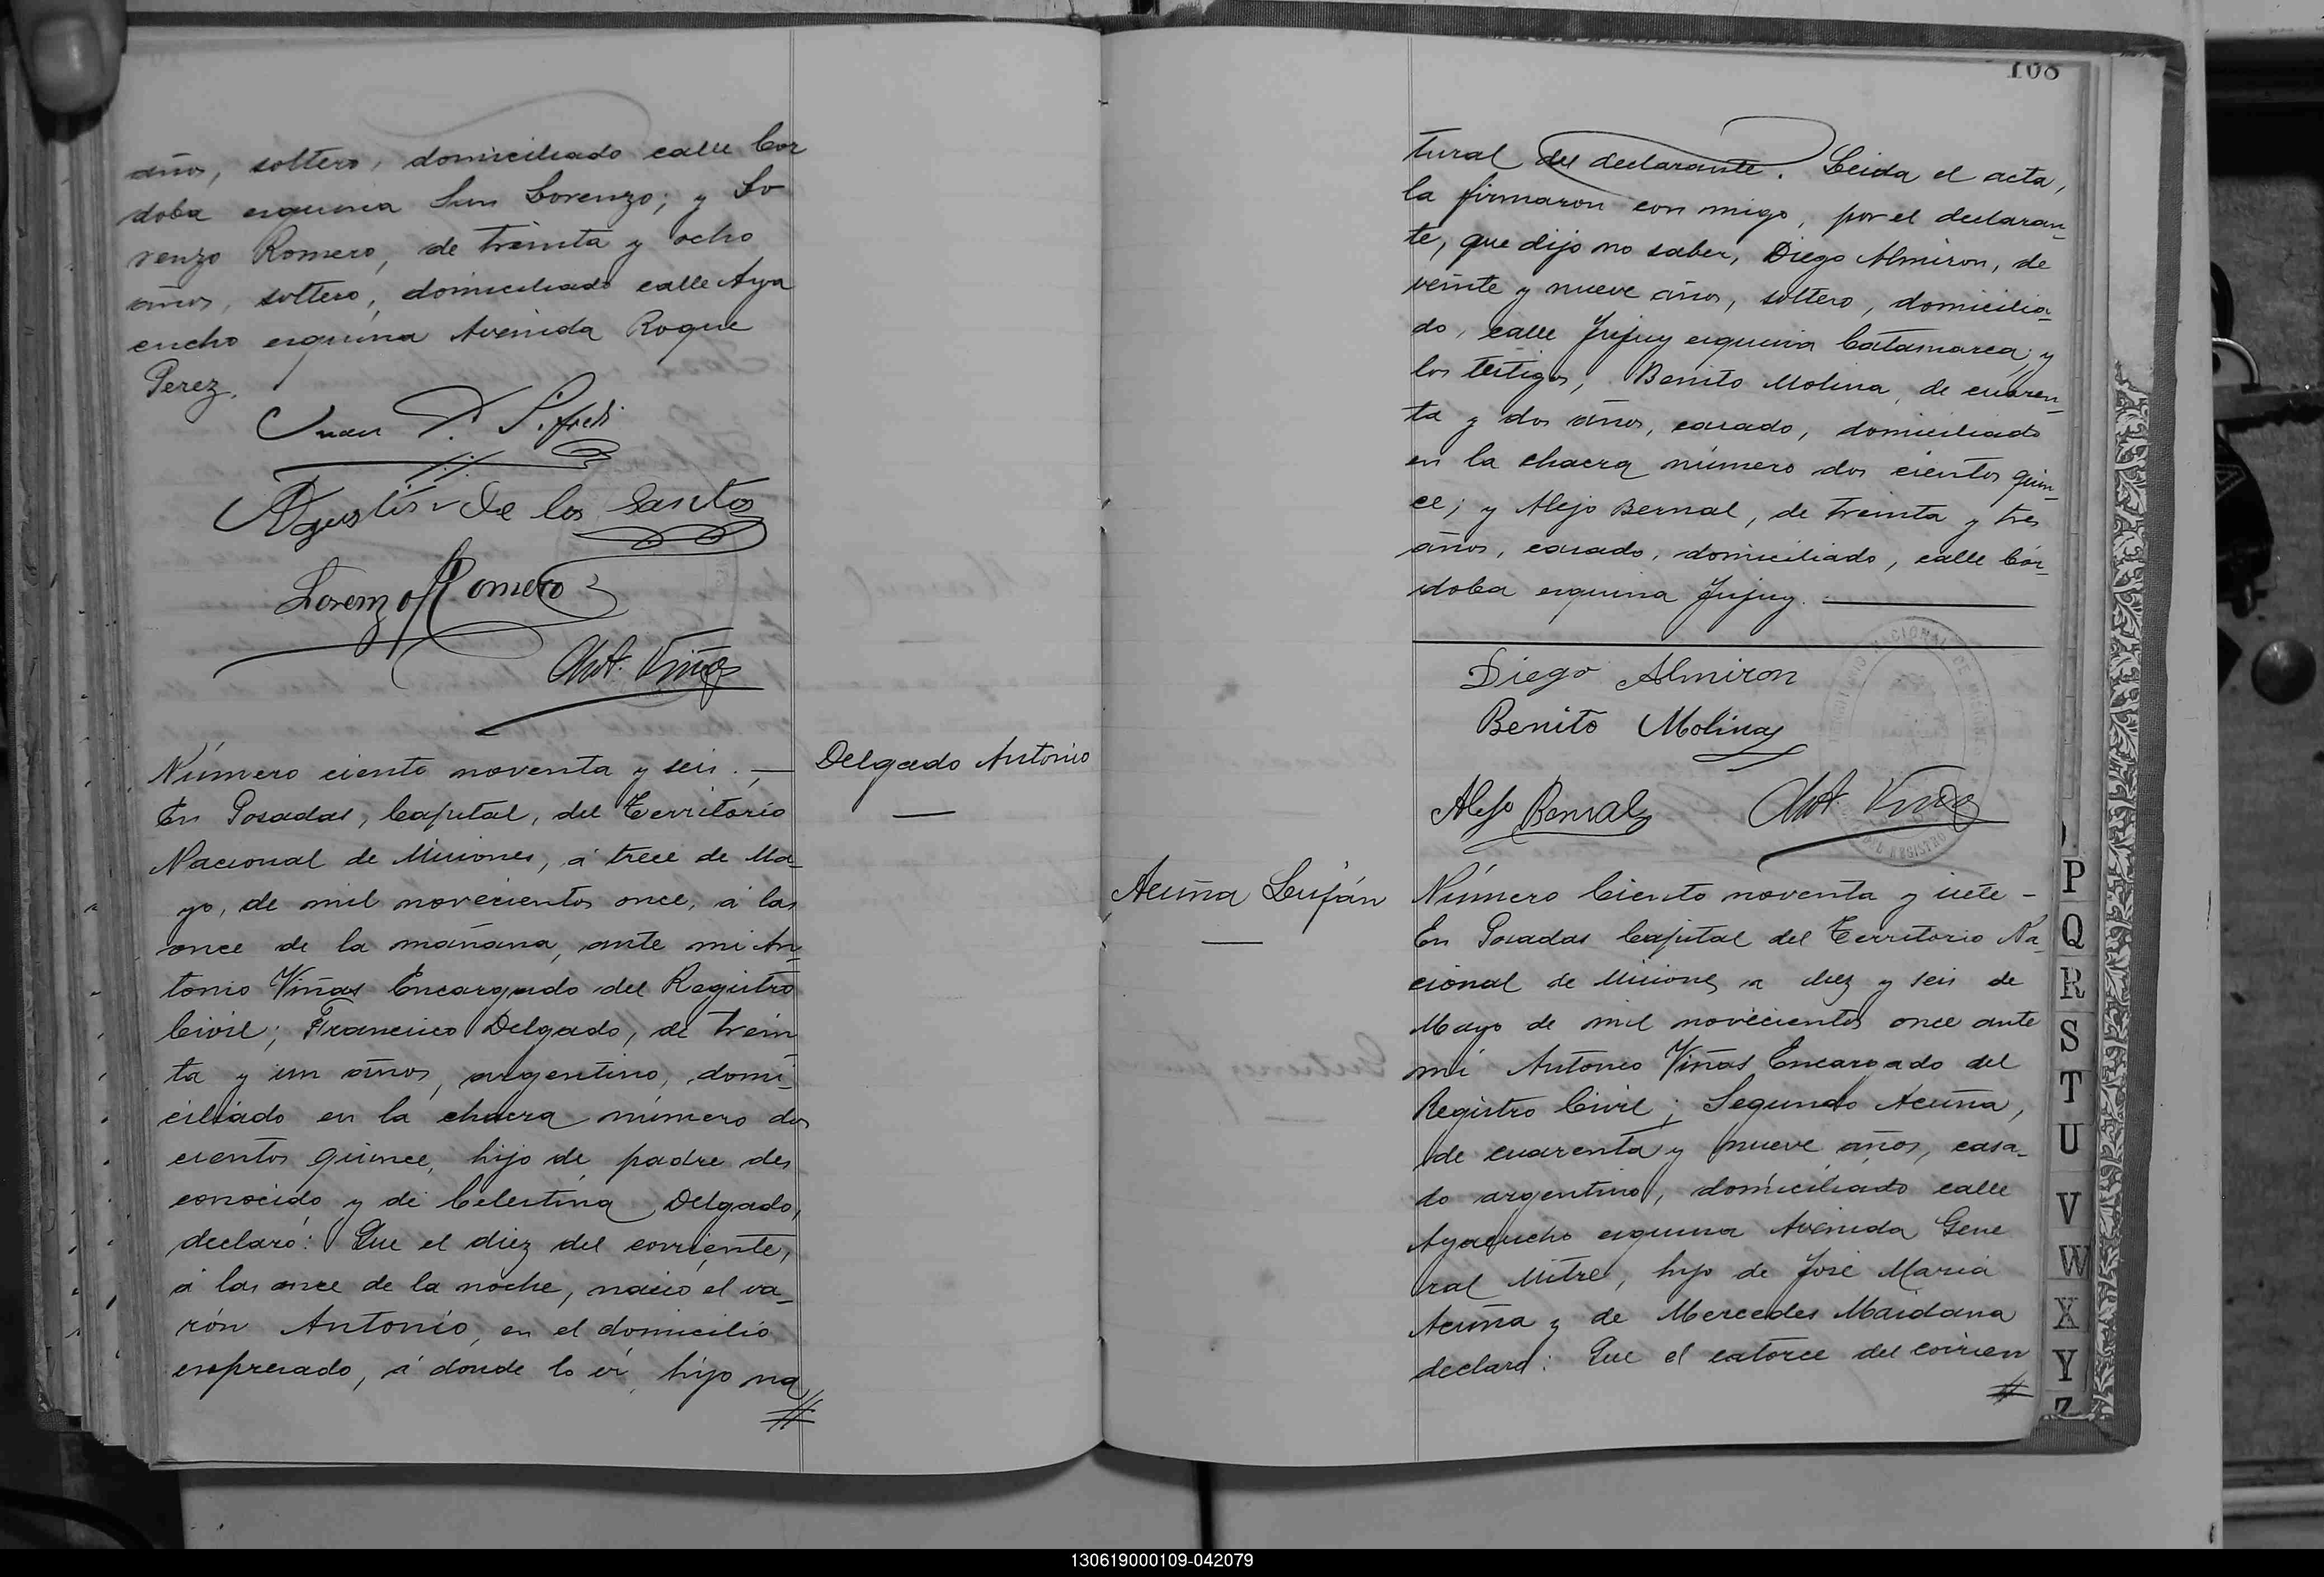 años, soltero, domiciliado calle Cor
doba esquina San Lorenzo; y Lo
renzo Romero, de treinta y ocho
años, soltero, domiciliado calle Aya
cucho esquina Avenida Roque
Perez.
Juan P. Sifredi
Agustin de los Santos
Lorenzo Romero
Ant. Viñas
Número ciento noventa y seis. —
En Posadas, Capital, del Territorio
Nacional de Misiones, á trece de Ma-
yo, de mil novecientos once, á las
once de la mañana, ante mi An-
tonio Viñas Encargado del Registro
Civil; Francisco Delgado, de trein
ta y un años, argentino, domi-
ciliado en la chacra número dos
cientos quince, hijo de padre des
conocido y de Celestina Delgado,
declaró: Que el diez del corriente,
á las once de la noche, nació el va-
rón Antonio, en el domicilio
expresado, á donde lo ví, hijo na
//
Delgado Antonio
108
tural del declarante. Leida el acta,
la firmaron con migo, por el declaran-
te, que dijo no saber, Diego Almiron, de
veinte y nueve años, soltero, domicilia-
do, calle Jujuy esquina Catamarca; y
los testigos, Benito Molina, de cuaren-
ta y dos años, casado, domiciliado
en la chacra número dos cientos quin-
ce; y Alejo Bernal, de treinta y tres
años, casado, domiciliado, calle Cór-
doba esquina Jujuy. —
Diego Almiron
Benito Molina
Alejo Bernal
Ant. Viñas
Acuña Luján
Número Ciento noventa y siete -
En Posadas Capital del Territorio Na-
cional de Misiones a diez y seis de
Mayo de mil novecientos once ante
mi Antonio Viñas Encargado del
Registro Civil; Segundo Acuña,
de cuarenta y nueve años, casa-
do argentino, domiciliado calle
Ayacucho esquina Avenida Gene
ral Mitre, hijo de José Maria
Acuña y de Mercedes Maidana
declaró: Que el catorce del corrien
//
P
Q
R
S
T
U
V
W
X
Y
Z
130619000109-042079